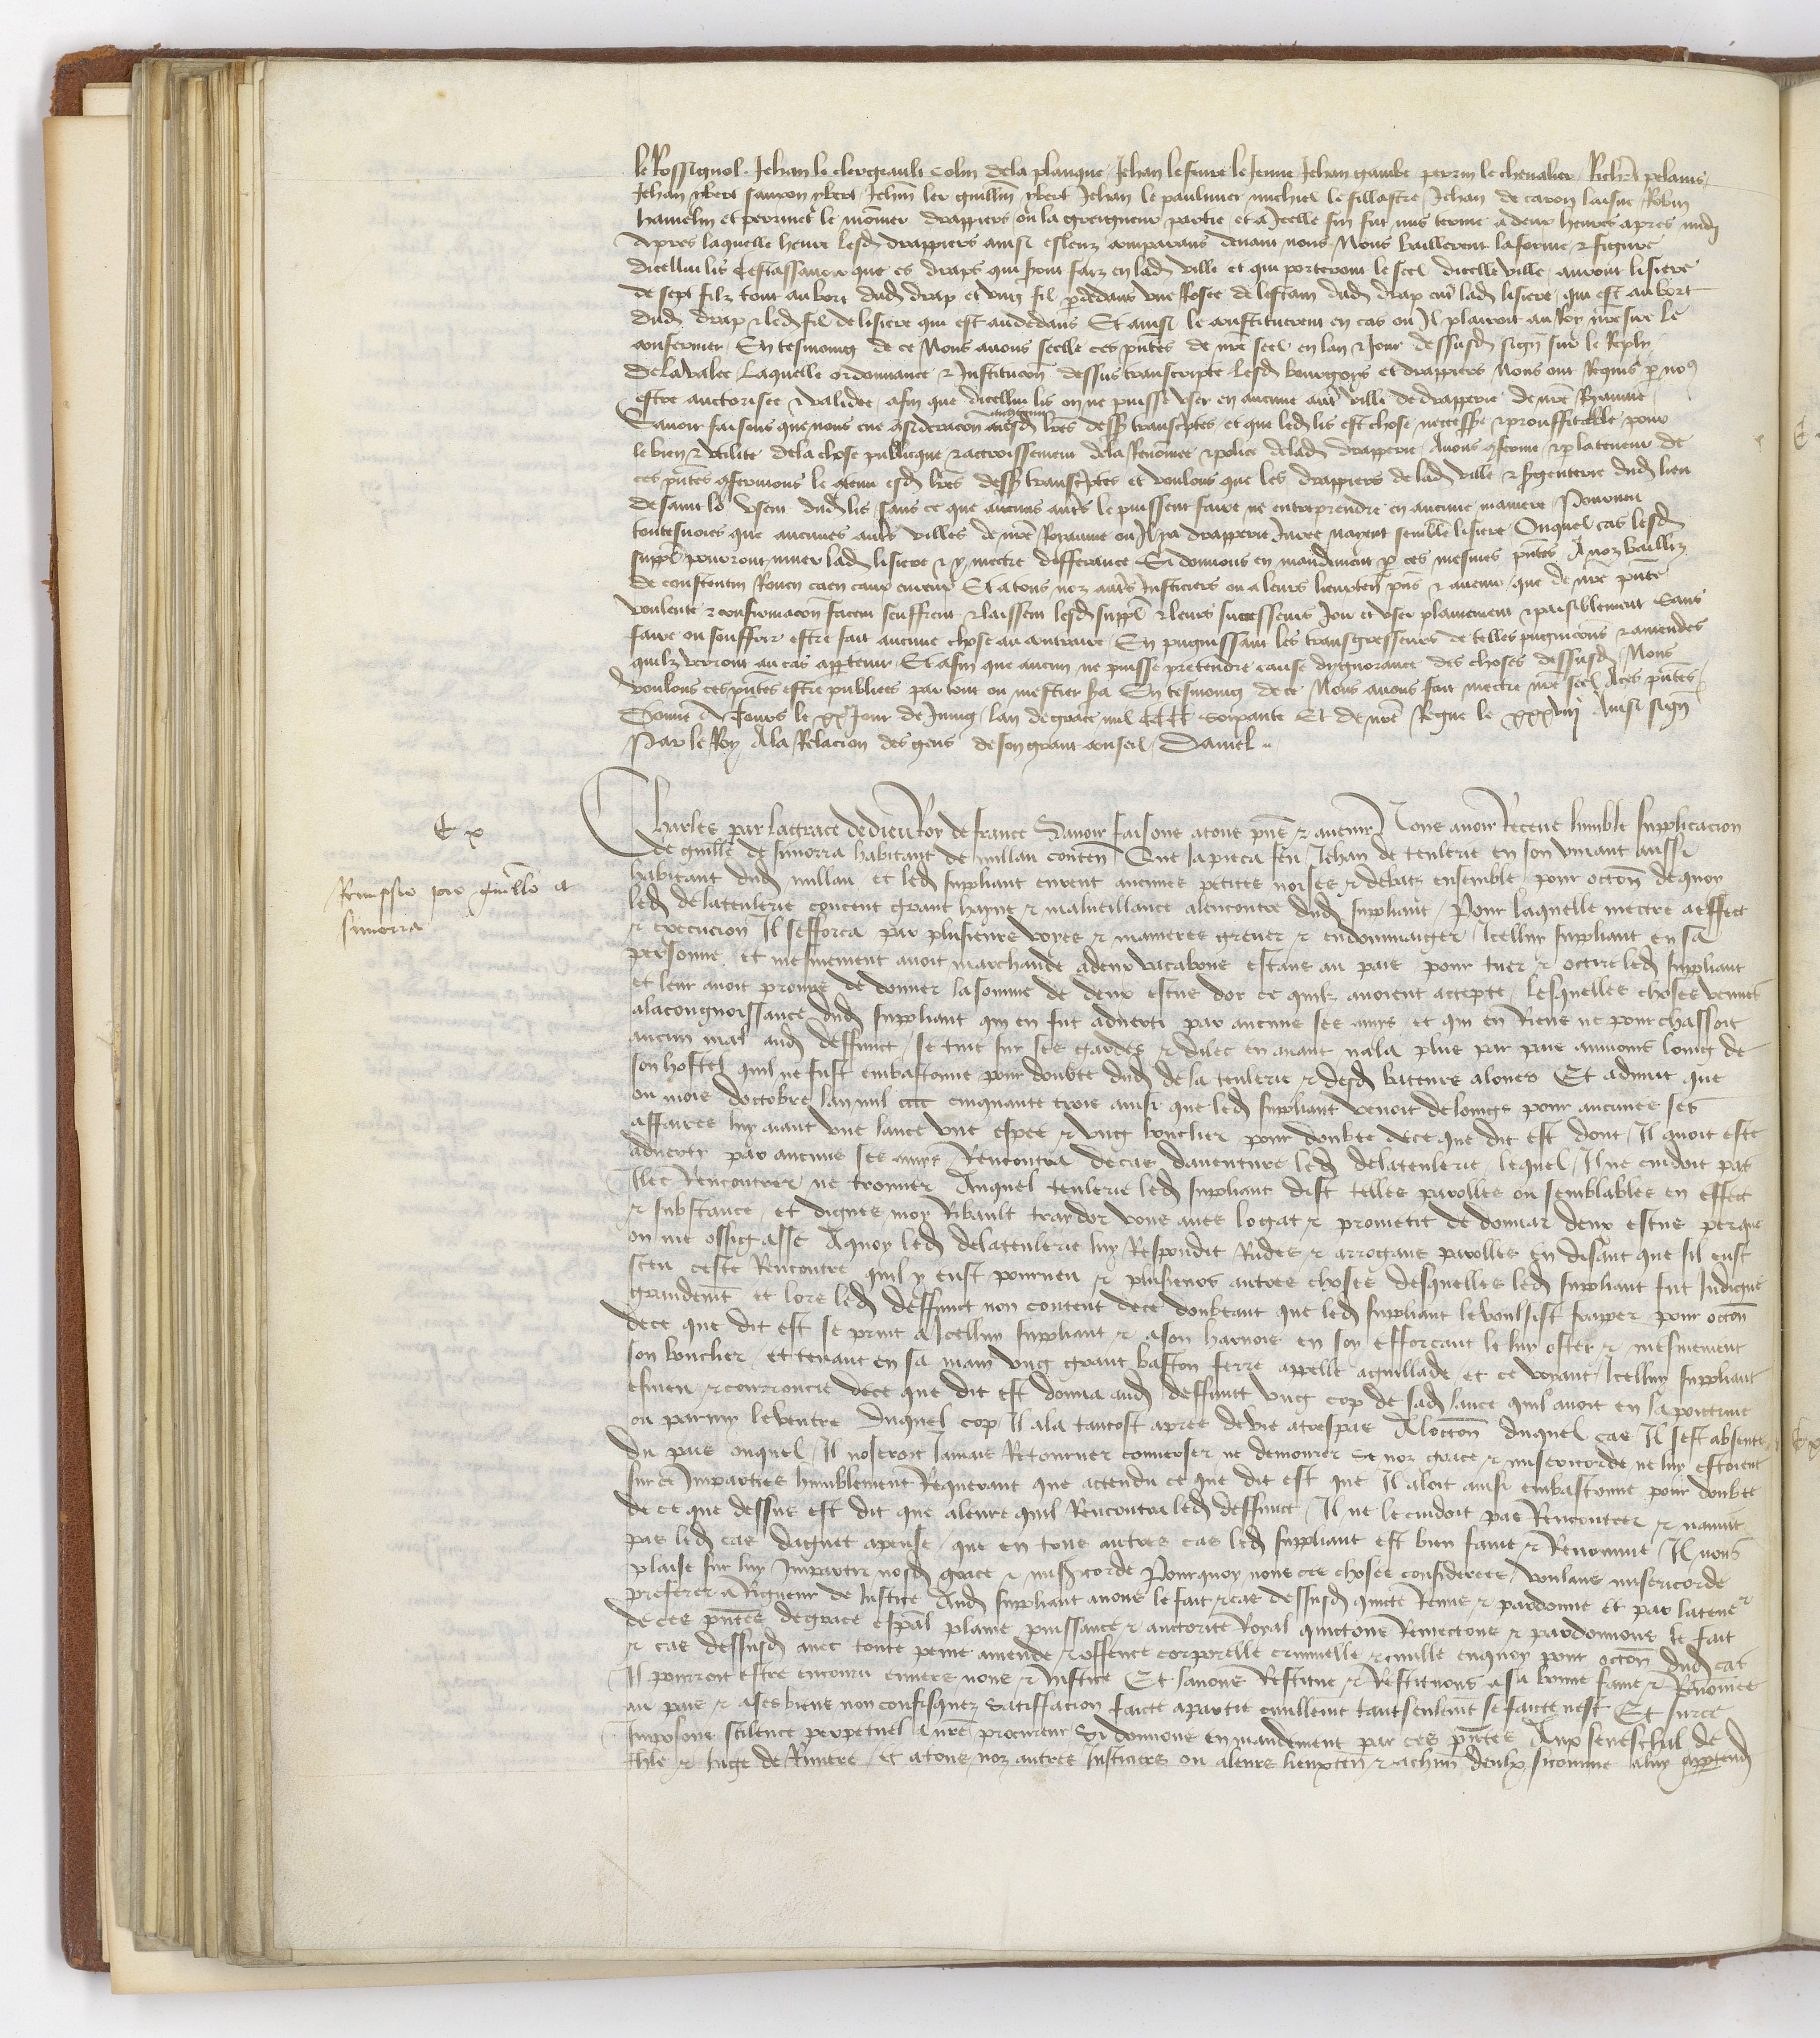 le Rossignol Jehan le clergeault Colin dela planque Jehan lefevre le Jenne Jehan gambe perrin le chevalier Rich pelams
Jehan ybert sanxon ybert Jehan ler guillm ybert Jehan le paulmier michiel le fillastre Jehan de caron laisne Robin
hamelin et perrinet le monier drappiers ou la greigneur partie et a Jcelle fin fut mis terme a deux heures apres midj
Apres laquelle heure lesd drappiers ainsi esleuz comparans devant nous Nous baillerent la forme & figure
dicellui lis Cestassavoir que es draps qui seront faiz en lad ville et qui porteront le seel dicelle ville auront lisiere
de sept filz tout au bort dud drap et ung fil pdedans une Rosee de lestain dud drap entre lad lisiere qui est au bort
dud drap & led fil de lisiere qui est audedans Et ainsi le constituerent en cas ou Jl plairoit au Roy nre sire le
confermer En tesmoing de ce Nous avons seelle ces pntes de nre seel en lan & Jour dessusd sign sur le Reply
Delavalee Laquelle ordonnance & Institucion dessus transcripte lesd bourgoys et drappiers Nous ont Requis p nos
estre auctorisee & validee afin que dicellui lis on ne puisse user en aucune autre ville de drapperie de nre Royaume
Savoir faisons que nous eue consideracion au contenu esd lres dess transcptes et que led lis est chose necesse & prouffitable pour
le bien & utilite dela chose publicque & accroissement dela Renomee & police de lad drapperie Avons conferme & p la teneur de
ces pntes confermons le contenu esd lres dess transcptes et voulons que les drappiers de lad ville & sergenterie dud lieu
de saint lo usent dud lis sans ce que aucuns autres le puissent faire ne entreprendre en aucune maniere Pourveu
toutesvoies que aucunes autres villes de nre Royaume ou Jl ya drapperie Juree nayent semble lisiere Ouquel cas lesd
suppl pourront muer lad lisiere & y mectre differance Si donnons en mandement p ces mesmes pntes A noz bailliz
de constentin Rouen caen caux evreux Et a tous noz autres Justiciers ou a leurs lieuxten pns & avenir que de nre pnte
voulente & confirmacion facent seuffrent & laissent lesd suppl & leurs successeurs Joir et user plainement & paisiblement Sans
faire ou souffrir estre fait aucune chose au contraire En pugnissant les transgresseurs de telles pugnicions & amendes
quilz verront au cas appartenir Et afin que aucun ne puisse pretendre cause dygnorance des choses dessusd Nous
voulons ces pntes estre publiees par tout ou mestier sera En tesmoing de ce Nous avons fait mectre nre seel A ces pntes
Donne A Tours le xxe Jour de Juing lan de grace mil CCCC soixante Et de nre Regne le xxxviij Ainsi sign
Par le Roy Ala Relacion des gens de son grant conseil Daniel
C x
Remissio pro Guillo a
simorra
Charles par la grace de dieu Roy de france Savoir faisons a tous pns & avenir Nous avoir Receue lumble supplicacion
de guille de simorra habitant de millau conten Que Japieca feu Jehan de teulerie en son vivant aussi
habitant dud millau et led supliant eurent aucunes petites noises & debatz ensemble pour occon dequoy
led delateulerie conceut grant hayne & malveillance alencontre dud supliant Pour laquelle mectre a effect
& execucion Jl sefforca par plusieurs voyes & manieres grever & endommaiger Jcelluy supliant en sa
personne et mesmement avoit marchande a deux vacabons estans au pais pour tuer & occire led supliant
et leur avoit promis de donner la somme de deux escus dor ce quilz avoient accepte Lesquelles choses vennt
ala congnoissance dud supliant qui en fut adverti par aucuns ses amys et qui en Riens ne pourchassoit
aucun mal aud deffunct se tint sur ses gardes & dilec en avant nala plus par pais aumoins loing de
son hostel quil ne fust embastonne pour doubte dud de la teulerie & desd bateurs alouez Et advint que
ou mois doctobre lan mil cccc cinquante trois ainsi que led supliant venoit de loings pour aucunes ses
affaires luy aiant une lance une espee & ung bouclier pour doubte dece que dit est dont Jl avoit este
adverty par aucuns ses amys Rencontra de cas daventure led delateulerie lequel Jl ne cuidoit pas
Jllec Rencontrer ne trouver Auquel teulerie led supliant dist telles parolles ou semblables en effect
& substance et dignes moy Ribault traydor vous aves logat & prometit de donnar deux escus perque
on me ossigasse A quoy led delateulerie luy Respondit Rudes & arrogans parolles en disant que sil eust
sceu ceste Rencontre quil y eust pourveu & plusieurs autres choses desquelles led supliant fut Indigne
grandemt et lors led deffunct non content dece doubtant que led supliant le voulsist fraper pour occon
dece que dit est se print a Jcelluy supliant & a son harnois en soy efforcant le luy oster & mesmement
son bouclier et tenant en sa main ung grant baston ferre appelle aguillade et ce voyant Jcelluy supliant
esmeu & courroucie dece que dit est donna aud deffunct ung cop de sad lance quil avoit en sa poictrine
ou parmy le ventre Duquel cop Jl ala tantost apres de vie a trespas A loccon duquel cas Jl sest absente
du pais ouquel Jl noseroit Jamais Retourner converser ne demourer se noz grace & misericorde ne luy estoient
sur ce Imparties humblement Requerant que actendu ce que dit est que Jl aloit ainsi embastonne pour doubte
de ce que dessus est dit que aleure quil Rencontra led deffunct Jl ne le cuidoit pas Rencontrer & navint
pas led cas daguet apense que en tous autres cas led supliant est bien fame & Renomme Jl nous
plaise sur luy Impartir nosd grace & misericorde Pourquoy nous ces choses considerees voulans misericorde
preferer a Rigueur de Justice Aud supliant avons le fait & cas dessusd quicte Remis & pardonne et par la tener
de ces pntes de grace espal plaine puissance & auctorite Royal quictons Remectons & pardonnons le fait
& cas dessusd avec toute peine amende & offence corporelle criminelle & civille enquoy pour occon dud cas
Jl pourroit estre encouru envers nous & Justice Et lavons Restitue & Restituons a sa bonne fame & Renomee
au pais & a ses biens non confisquez Satisfacion faicte a partie civillemt tant seulemt se faicte nest Et surce
Imposons scilence perpetuel a nre procureur Si donnons en mandement par ces pntes Aux seneschal de
thle & Juge de Riviere et a tous noz autres Justiciers ou a leurs lieuxten & achun deulx sicomme a luy appartend